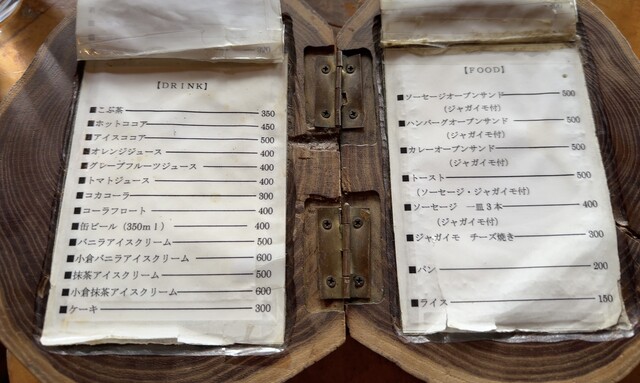 【DRINK】
■こぶ茶 350
■ホットココア 450
■アイスココア 500
■オレンジジュース 400
■グレープフルーツジュース 400
■トマトジュース 400
■コカコーラ 300
■コーラフロート 400
■缶ビール（350ml） 400
■バニラアイスクリーム 500
■小倉バニラアイスクリーム 600
■抹茶アイスクリーム 500
■小倉抹茶アイスクリーム 600
■ケーキ 300
【FOOD】
■ソーセージオープンサンド 500
（ジャガイモ付）
■ハンバーグオープンサンド 500
（ジャガイモ付）
■カレーオープンサンド 500
（ジャガイモ付）
■トースト 500
（ソーセージ・ジャガイモ付）
■ソーセージ 一皿3本 400
（ジャガイモ付）
■ジャガイモ チーズ焼き 300
■パン 200
■ライス 150